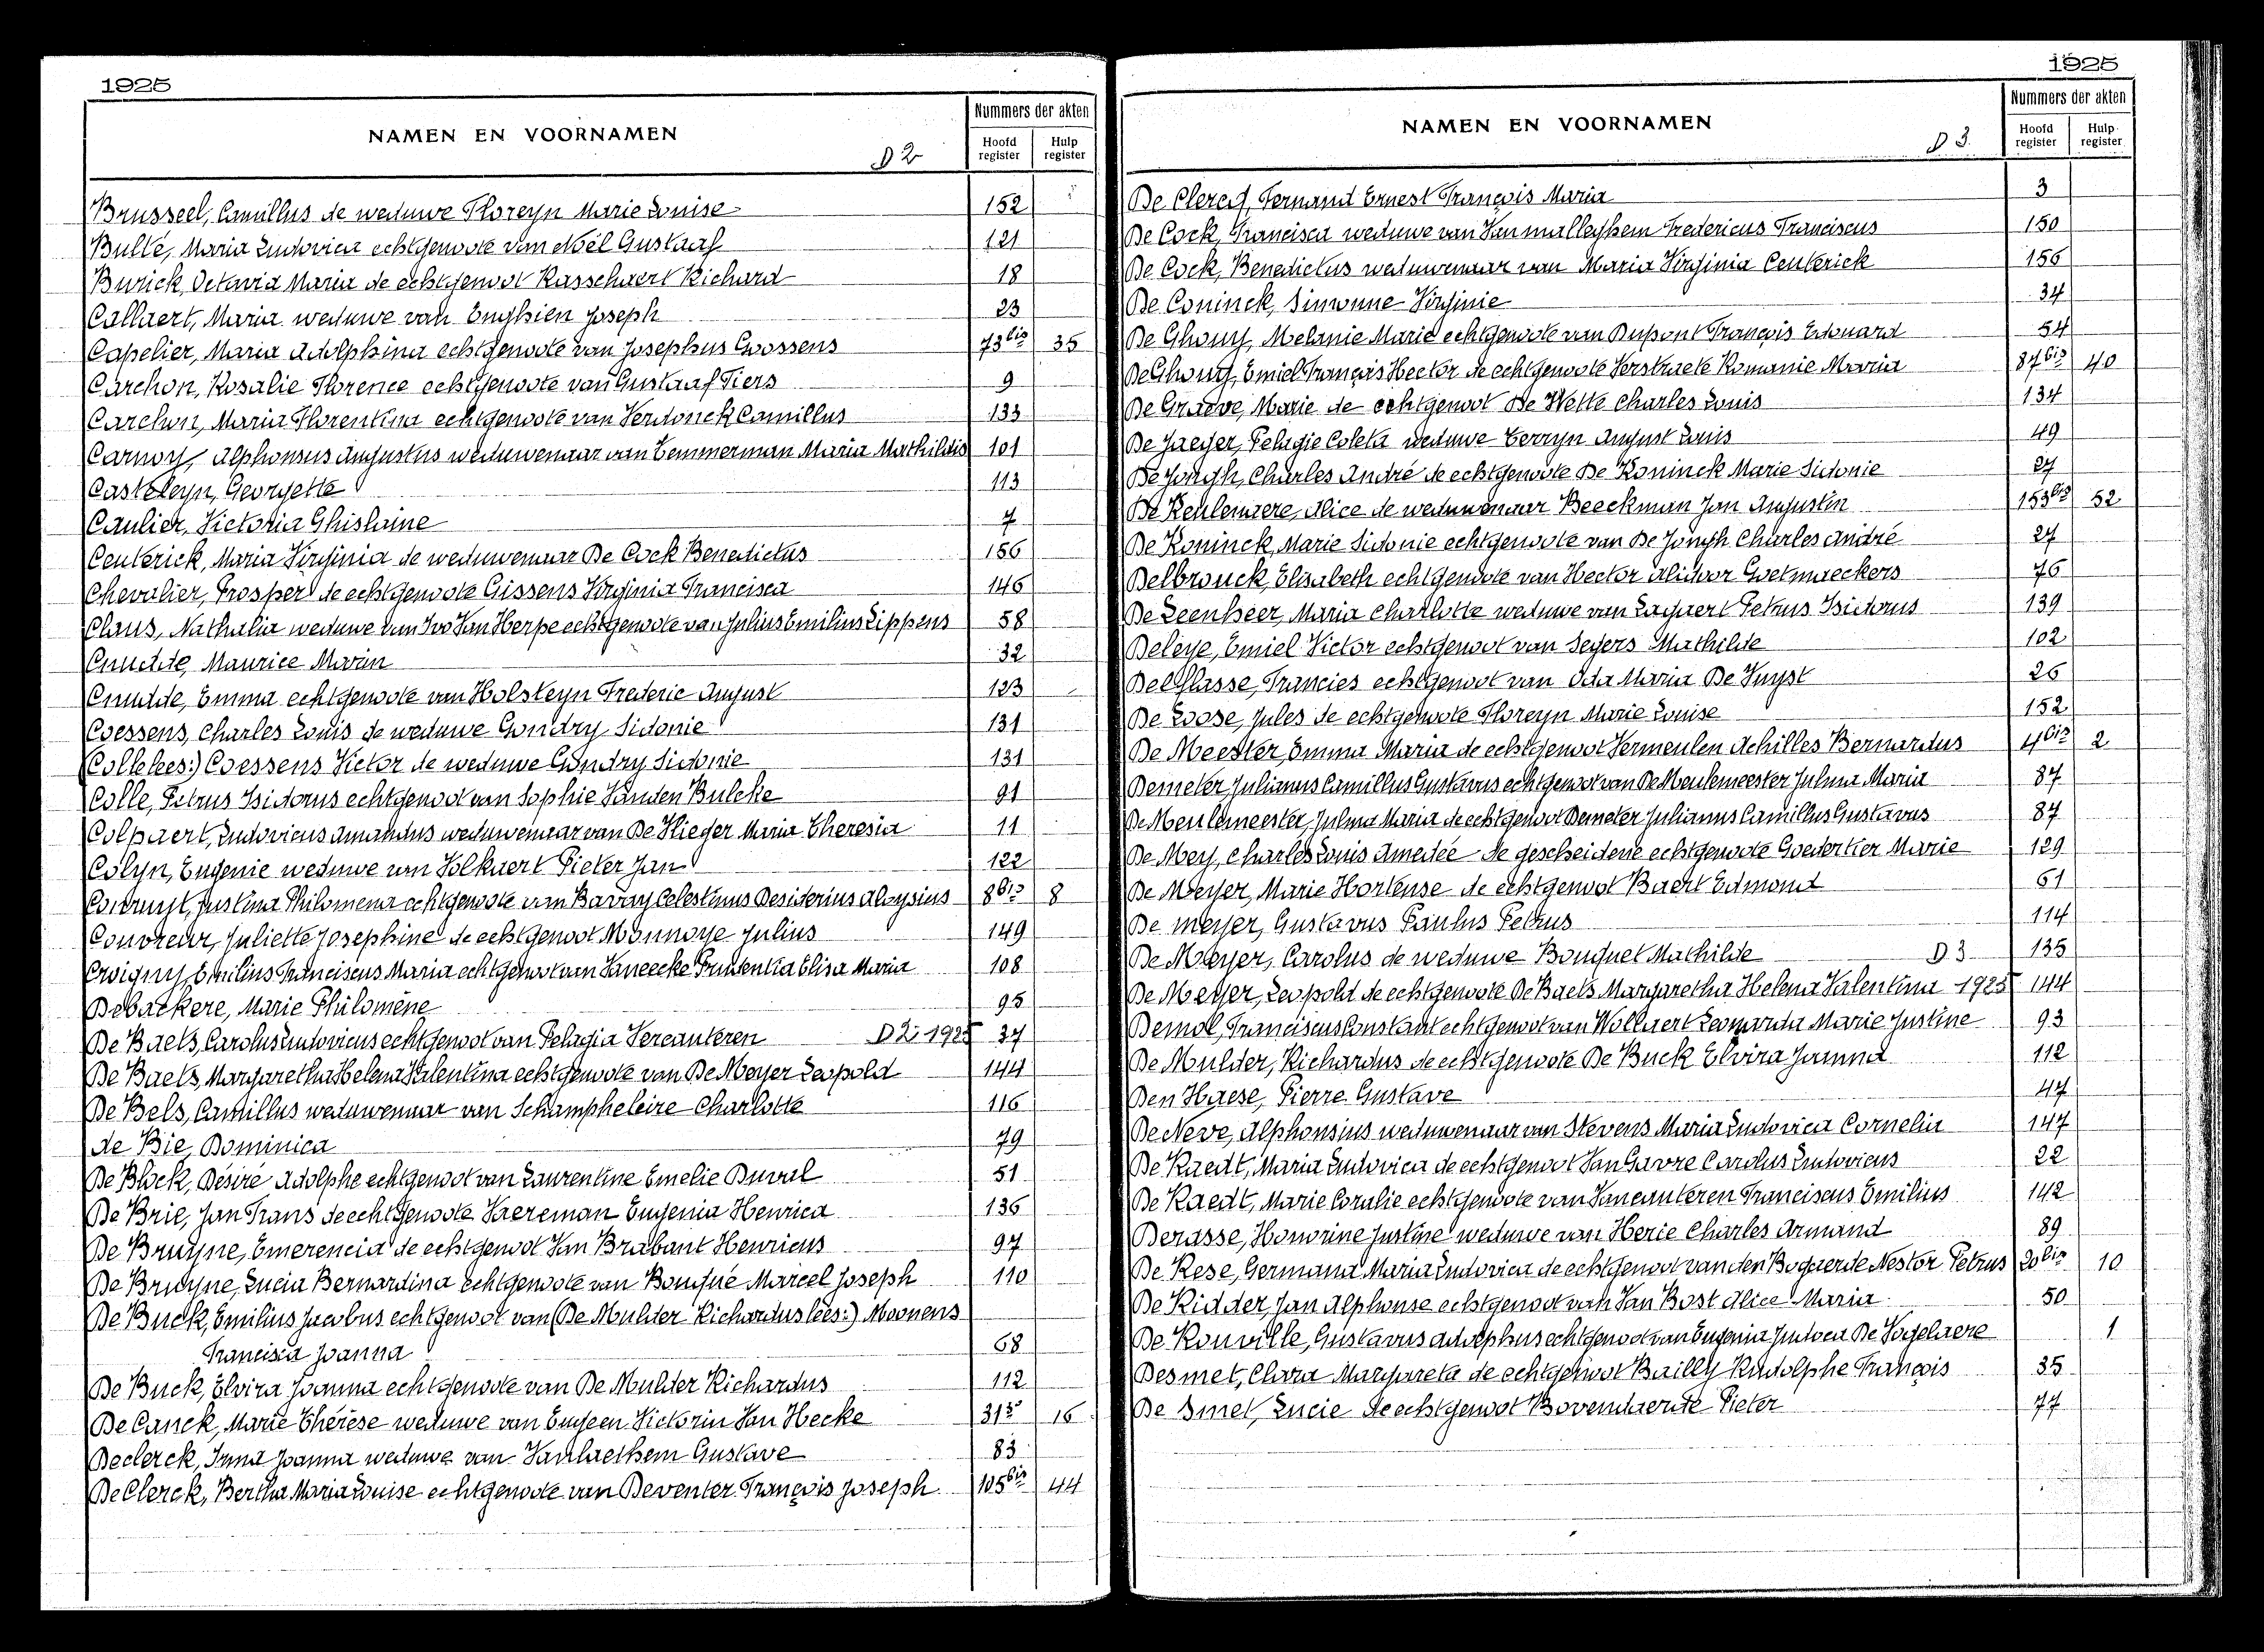 1925
NAMEN EN VOORNAMEN
D 2
Nummers der akten
Hoofd register
Hulp register
Brusseel, Camillus de weduwe Floreyn Marie Louise 152
Bulté, Maria Ludovica echtgenoote van Noël Gustaaf 121
Burick, Octavia Maria de echtgenoot Rasschaert Richard 18
Callaert, Maria weduwe van Enghien Joseph 23
Capelier, Maria Adolphina echtgenoote van Josephus Goossens 73bis 35
Carchon, Rosalie Florence echtgenoote van Gustaaf Piers 9
Carchon, Maria Florentina echtgenoote van Verdonck Camillus 133
Carnoy, Alphonsus Augustus weduwenaar van Temmerman Maria Mathildis 101
Casteleyn, Georgette 113
Caulier, Victoria Ghislaine 7
Centerick, Maria Virginia de weduwenaar De Cock Benedictus 156
Chevalier, Prosper de echtgenoote Gissens Virginia Francisca 146
Claus, Nathalia weduwe van Ivo Van Herpe echtgenoote van Julius Emilius Lippens 58
Cnudde, Maurice Marin 32
Cnudde, Emma echtgenoote van Holsteyn Frederic August 123
Coessens, Charles Louis de weduwe Gondry Sidonie 131
(Colle lees:) Coessens Victor de weduwe Gondry Sidonie 131
Colle, Petrus Isidorus echtgenoot van Sophie Vanden Bulcke 91
Colpaert, Ludovicus Amandus weduwenaar van De Vlieger Maria Theresia 11
Colyn, Eugenie weduwe van Volkaert Pieter Jan 122
Cornuyt, Justina Philomena echtgenoote van Bavray Celestinus Desiderius Aloysius 8bis 8
Couvreur, Juliette Josephine de echtgenoot Monnoye Julius 149
Croigny, Emilius Franciscus Maria echtgenoot van Vaneecke Prudentia Elisa Maria 108
Debackere, Marie Philomène 95
De Baets, Carolus Ludovicus echtgenoot van Pelagia Vercauteren D 2 1925 37
De Baets, Margaretha Helena Valentina echtgenoote van De Meyer Leopold 144
De Bels, Camillus weduwenaar van Schampheleire Charlotte 116
de Bie, Dominica 79
De Block, Désiré Adolphe echtgenoot van Laurentine Emelie Duval 51
De Brie, Jan Frans de echtgenoote Vaereman Eugenia Henrica 136
De Bruyne, Emerencia de echtgenoot Van Brabant Henricus 97
De Bruyne, Lucia Bernardina echtgenoote van Bourgué Marcel Joseph 110
De Buck, Emilius Jacobus echtgenoot van (De Mulder Richardus lees:) Moonens
Francisca Joanna 68
De Buck, Elvira Joanna echtgenoote van De Mulder Richardus 112
De Canck, Marie Thérèse weduwe van Eugeen Victorin Van Hecke 31b 16
Declerck, Inna Joanna weduwe van Vanlaethem Gustave 83
De Clerck, Bertha Maria Louise echtgenoote van Deventer François Joseph 105bis 44
1925
NAMEN EN VOORNAMEN
D 3
Nummers der akten
Hoofd register
Hulp register
De Clercq, Fernand Ernest François Maria 3
De Cock, Francisca weduwe van Vanmalleghem Fredericus Franciscus 150
De Cock, Benedictus weduwenaar van Maria Virginia Centerick 156
De Coninck, Simonne Virginie 34
De Ghouy, Melanie Marie echtgenoote van Dupont François Edouard 54
De Ghouy, Emiel François Hector de echtgenoote Verstraete Romanie Maria 87bis 40
De Graeve, Marie de echtgenoot De Wette Charles Louis 134
De Jaeger, Pelagie Coleta weduwe Terryn August Louis 49
De Jongh, Charles André de echtgenoote De Koninck Marie Sidonie 27
De Keuleneere, Alice de weduwenaar Beeckman Jan Augustin 153bis 52
De Koninck, Marie Sidonie echtgenoote van De Jongh Charles André 27
Delbrouck, Elisabeth echtgenoote van Hector Alidoor Goetmaeckers 76
De Leenheer, Maria Charlotte weduwe van Lagaert Petrus Isidorus 139
Deleye, Emiel Victor echtgenoot van Segers Mathilde 102
Delflasse, Francies echtgenoot van Oda Maria De Vuyst 26
De Loose, Jules de echtgenoote Floreyn Marie Louise 152
De Meester, Emma Maria de echtgenoot Vermeulen Achilles Bernardus 4bis 2
Demeter, Julianus Camillus Gustavus echtgenoot van De Meulemeester Julma Maria 87
De Meulemeester, Julma Maria de echtgenoot Demeter Julianus Camillus Gustavus 87
De Mey, Charles Louis Amedée de gescheidene echtgenoote Goedertier Marie 129
De Meyer, Marie Hortense de echtgenoot Baert Edmond 61
De meyer, Gustavus Paulus Petrus 114
De Meyer, Carolus de weduwe Bouquet Mathilde D 3 135
De Meyer, Leopold de echtgenoote De Baets Margaretha Helena Valentina 1925 144
Demol, Franciscus Constant echtgenoot van Wollaert Leonarda Marie Justine 93
De Mulder, Richardus de echtgenoote De Buck Elvira Joanna 112
Den Haese, Pierre Gustave 47
De Neve, Alphonsius weduwenaar van Stevens Maria Ludovica Cornelia 147
De Raedt, Maria Ludovica de echtgenoot Van Gavre Carolus Ludovicus 22
De Raedt, Marie Coralie echtgenoote van Vancauteren Franciscus Emilius 142
Derasse, Honorine Justine weduwe van Herie Charles Armand 89
De Rese, Germana Maria Ludovica de echtgenoot van den Bogaerde Nestor Petrus 20bis 10
De Ridder, Jan Alphonse echtgenoot van Van Bost Alice Maria 50
De Rouville, Gustavus Adolphus echtgenoot van Eugenia Judoca De Vogelaere 1
Desmet, Clara Margareta de echtgenoot Bailly Rudolphe François 35
De Smet, Lucie de echtgenoot Bovendaerde Pieter 77